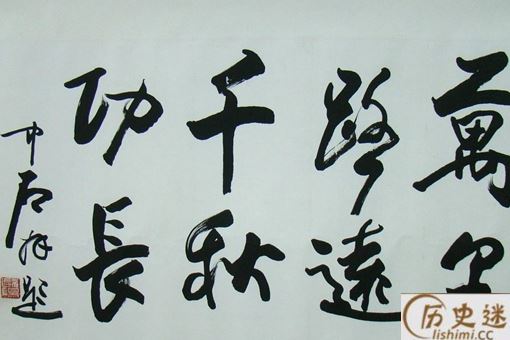 萬里
路遠
千秋
功長
中石題
历史迷
lishimi.cc